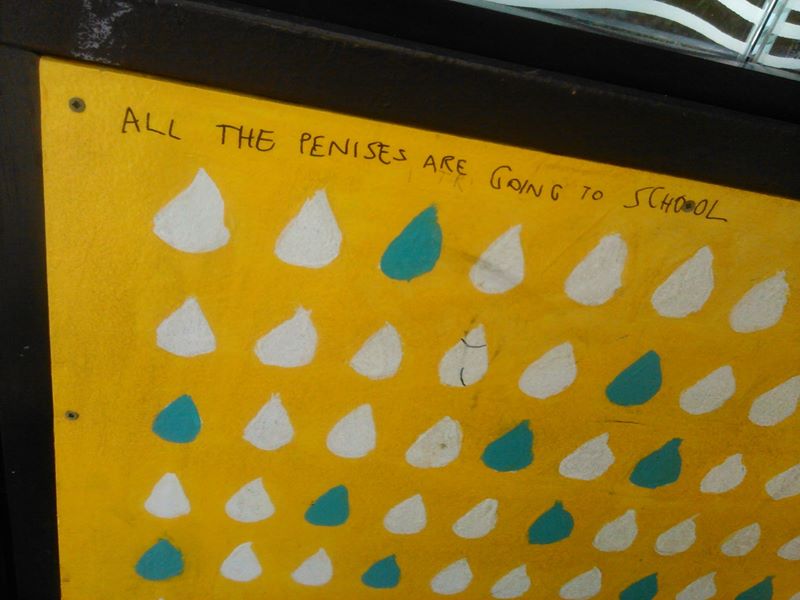 ALL THE PENISES ARE GOING TO SCHOOL